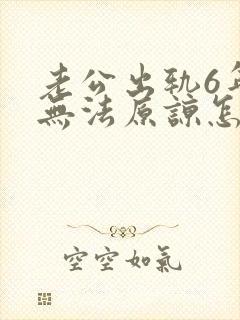 老公出轨6年
無法原諒怎
空空如氣